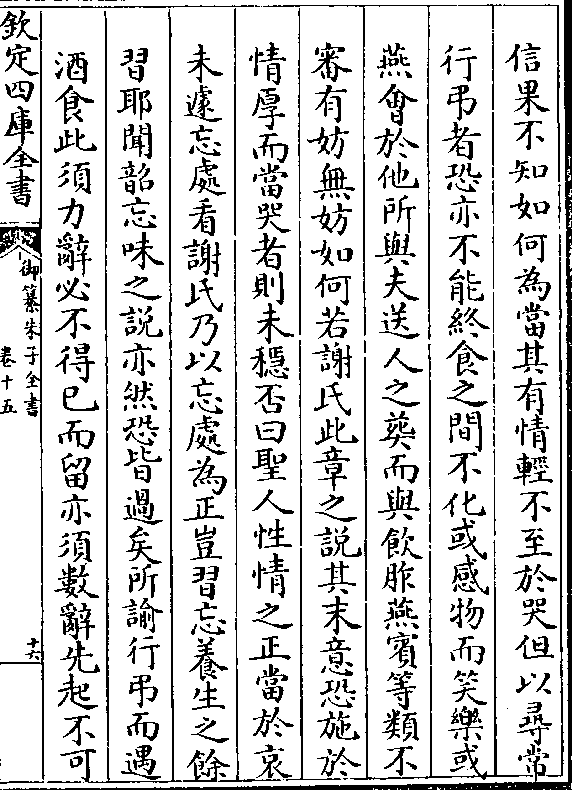 信果不知如何為當其有情輕不至於哭但以尋常
行弔者恐亦不能終食之間不化或感物而笑樂或
燕會於他所與夫送人之葬而與飲胙燕賓等類不
審有妨無妨如何若謝氏此章之說其末意恐施於
情厚而當哭者則未穏否曰聖人性情之正當於哀
未遽忘處看謝氏乃以忘處為正豈習忘養生之餘
習耶聞韶忘味之說亦然恐皆過矣所諭行弔而遇
酒食此須力辭必不得已而留亦須數辭先起不可
欽定四庫全書
御纂朱子全書
卷十五
十六